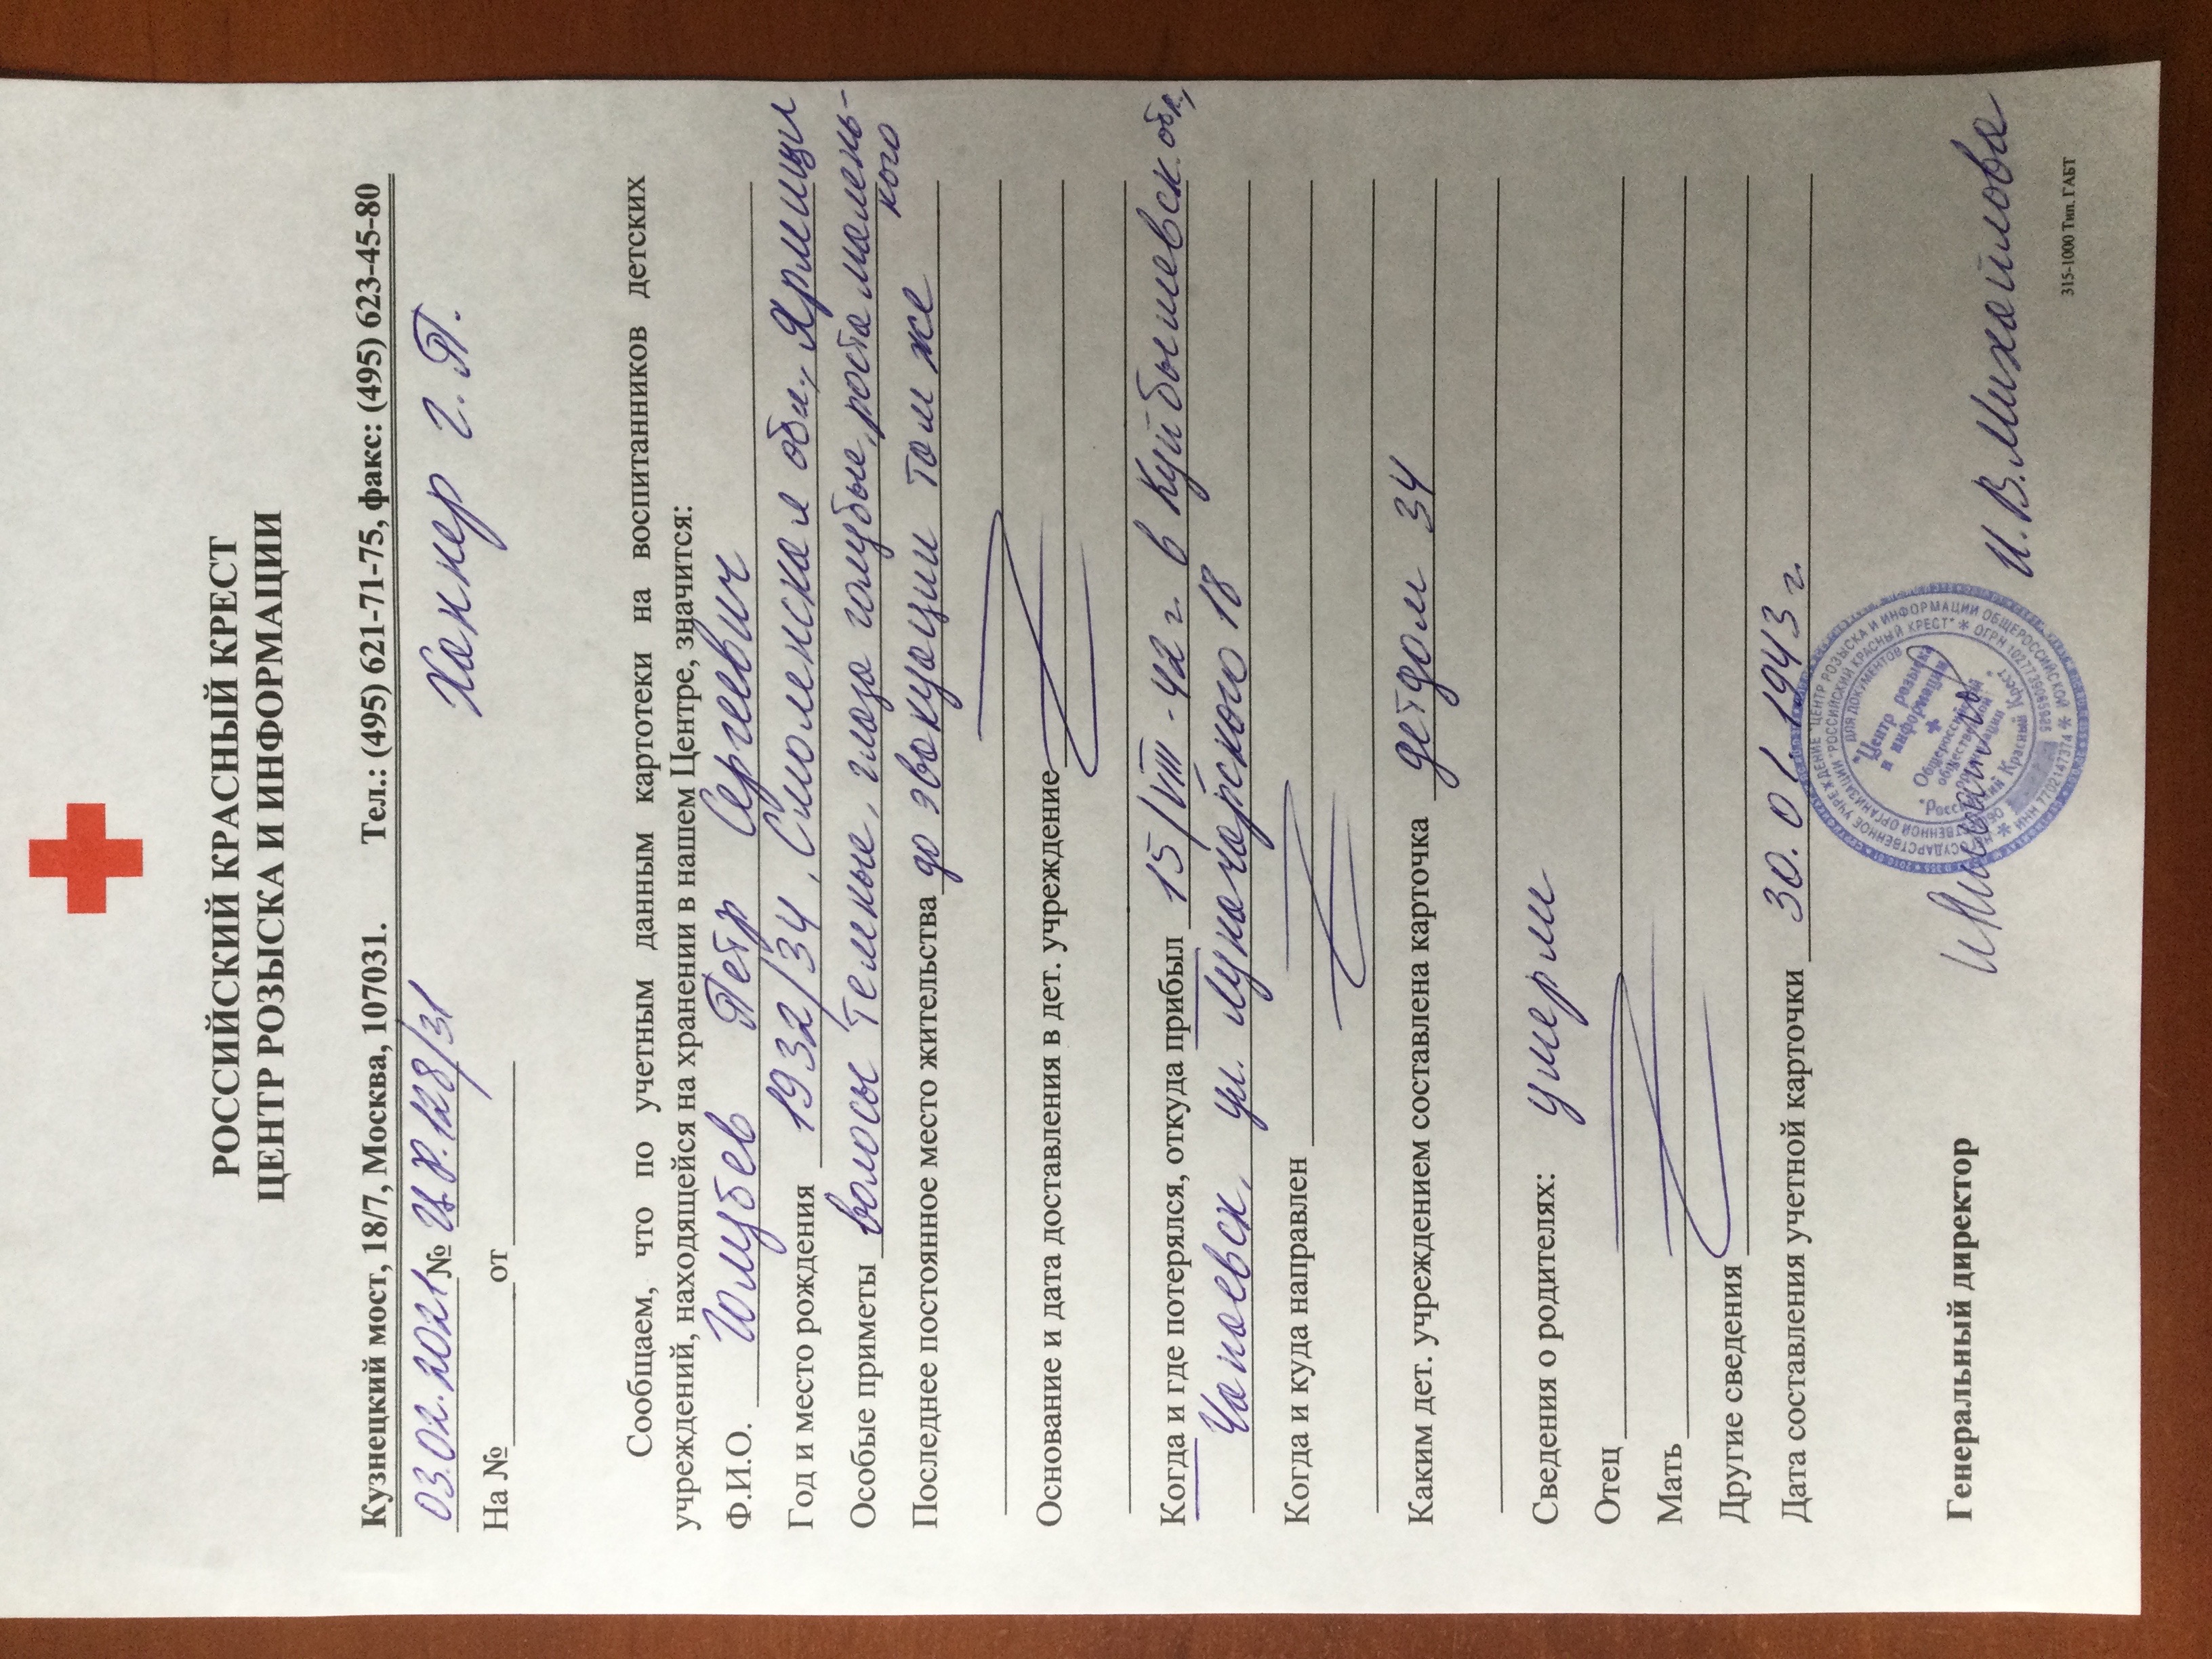 РОССИЙСКИЙ КРАСНЫЙ КРЕСТ
ЦЕНТР РОЗЫСКА И ИНФОРМАЦИИ
Кузнецкий мост, 18/7, Москва, 107031. Тел.: (495) 621-71-75, факс: (495) 623-45-80
03.02.2021 № И.Р.128/31
Ханнер Г.П.
На № от
Сообщаем, что по учетным данным картотеки на воспитанников детских
учреждений, находящейся на хранении в нашем Центре, значится:
Ф.И.О. Голубев Петр Сергеевич
Год и место рождения 1932/34, Смоленская обл., Ярмици
Особые приметы волосы темные, глаза голубые, роста малень-
кого
Последнее постоянное место жительства до эвакуации там же
Основание и дата доставления в дет. учреждение
Когда и где потерялся, откуда прибыл 15/VIII-42 г. в Куйбышевск. обл.,
Чапаевск, ул. Луначарского 18
Когда и куда направлен
Каким дет. учреждением составлена карточка детдом 34
Сведения о родителях: умерли
Отец
Мать
Другие сведения
Дата составления учетной карточки 30.01.1943 г.
Генеральный директор И.В.Михайлова
315-1000 Тип. ГАБТ
ДЛЯ ДОКУМЕНТОВ
"Центр розыска
и информации"